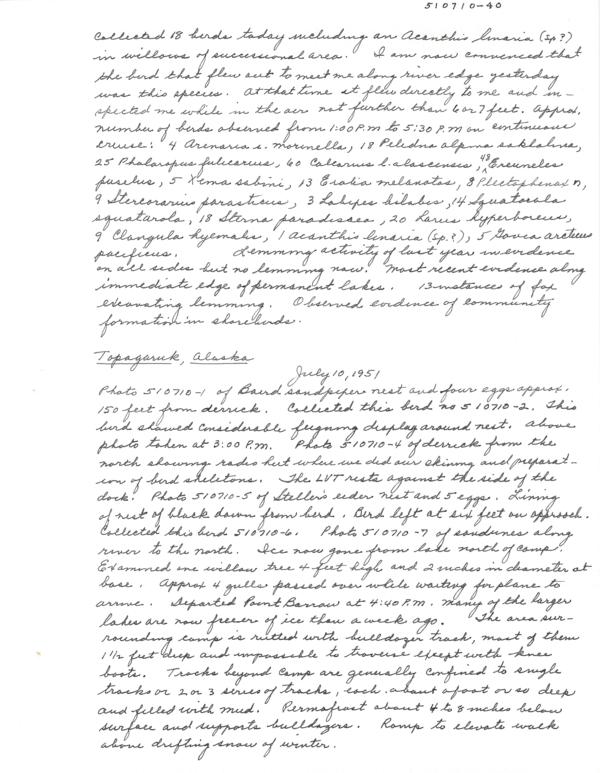 510710-40
Collected 18 birds today including an Acanthis linaria (sp?)
in willows of successional area. I am now convinced that
the bird that flew out to meet me along river edge yesterday
was this species. At that time it flew directly to me and in-
spected me while in the air not further than 6 or 7 feet. Approx.
number of birds observed from 1:00 P.M to 5:30 P.M on continuous
cruise: 4 Arenaria i. morinella, 18 Pelidna alpina sakhalina,
25 Phalaropus fulicarius, 60 Calcarius l. alascensis, 48 Ereunetes
pusillus, 5 Xema sabini, 13 Erolia melanotos, 8 Plectophenax n,
9 Stercorarius parasiticus, 3 Lobipes lobatus, 14 Squatarola
squatarola, 18 Sterna paradisaea, 20 Larus hyperboreus,
9 Clangula hyemalis, 1 Acanthis linaria (sp.?), 5 Gavia arcticus
pacificus. Lemming activity of last year in evidence
on all sides but no lemming now. Most recent evidence along
immediate edge of permanent lakes. 13 instances of fox
excavating lemming. Observed evidence of community
formation in shorebirds.
Topagaruk, Alaska
July 10, 1951
Photo 510710-1 of Baird sandpiper nest and four eggs approx.
150 feet from derrick. Collected this bird no 510710-2. This
bird showed considerable feigning display around nest. Above
photo taken at 3:00 P.M. Photo 510710-4 of derrick from the
north showing radio hut where we did our skinning and preparat-
ion of bird skeletons. The LVT rests against the side of the
dock. Photo 510710-5 of Steller's eider nest and 5 eggs. Lining
of nest of black down from bird. Bird left at six feet on approach.
Collected this bird 510710-6. Photo 510710-7 of sandunes along
river to the north. Ice now gone from lake north of camp.
Examined one willow tree 4 feet high and 2 inches in diameter at
base. Approx 4 gulls passed over while waiting for plane to
arrive. Departed Point Barrow at 4:40 P.M. Many of the larger
lakes are now freeer of ice than a week ago. The area sur-
rounding camp is rutted with bulldozer track, most of them
1 1/2 feet deep and impossible to traverse except with knee
boots. Tracks beyond camp are generally confined to single
tracks or 2 or 3 series of tracks, each about a foot or so deep
and filled with mud. Permafrost about 4 to 8 inches below
surface and supports bulldozers. Ramp to elevate walk
above drifting snow of winter.